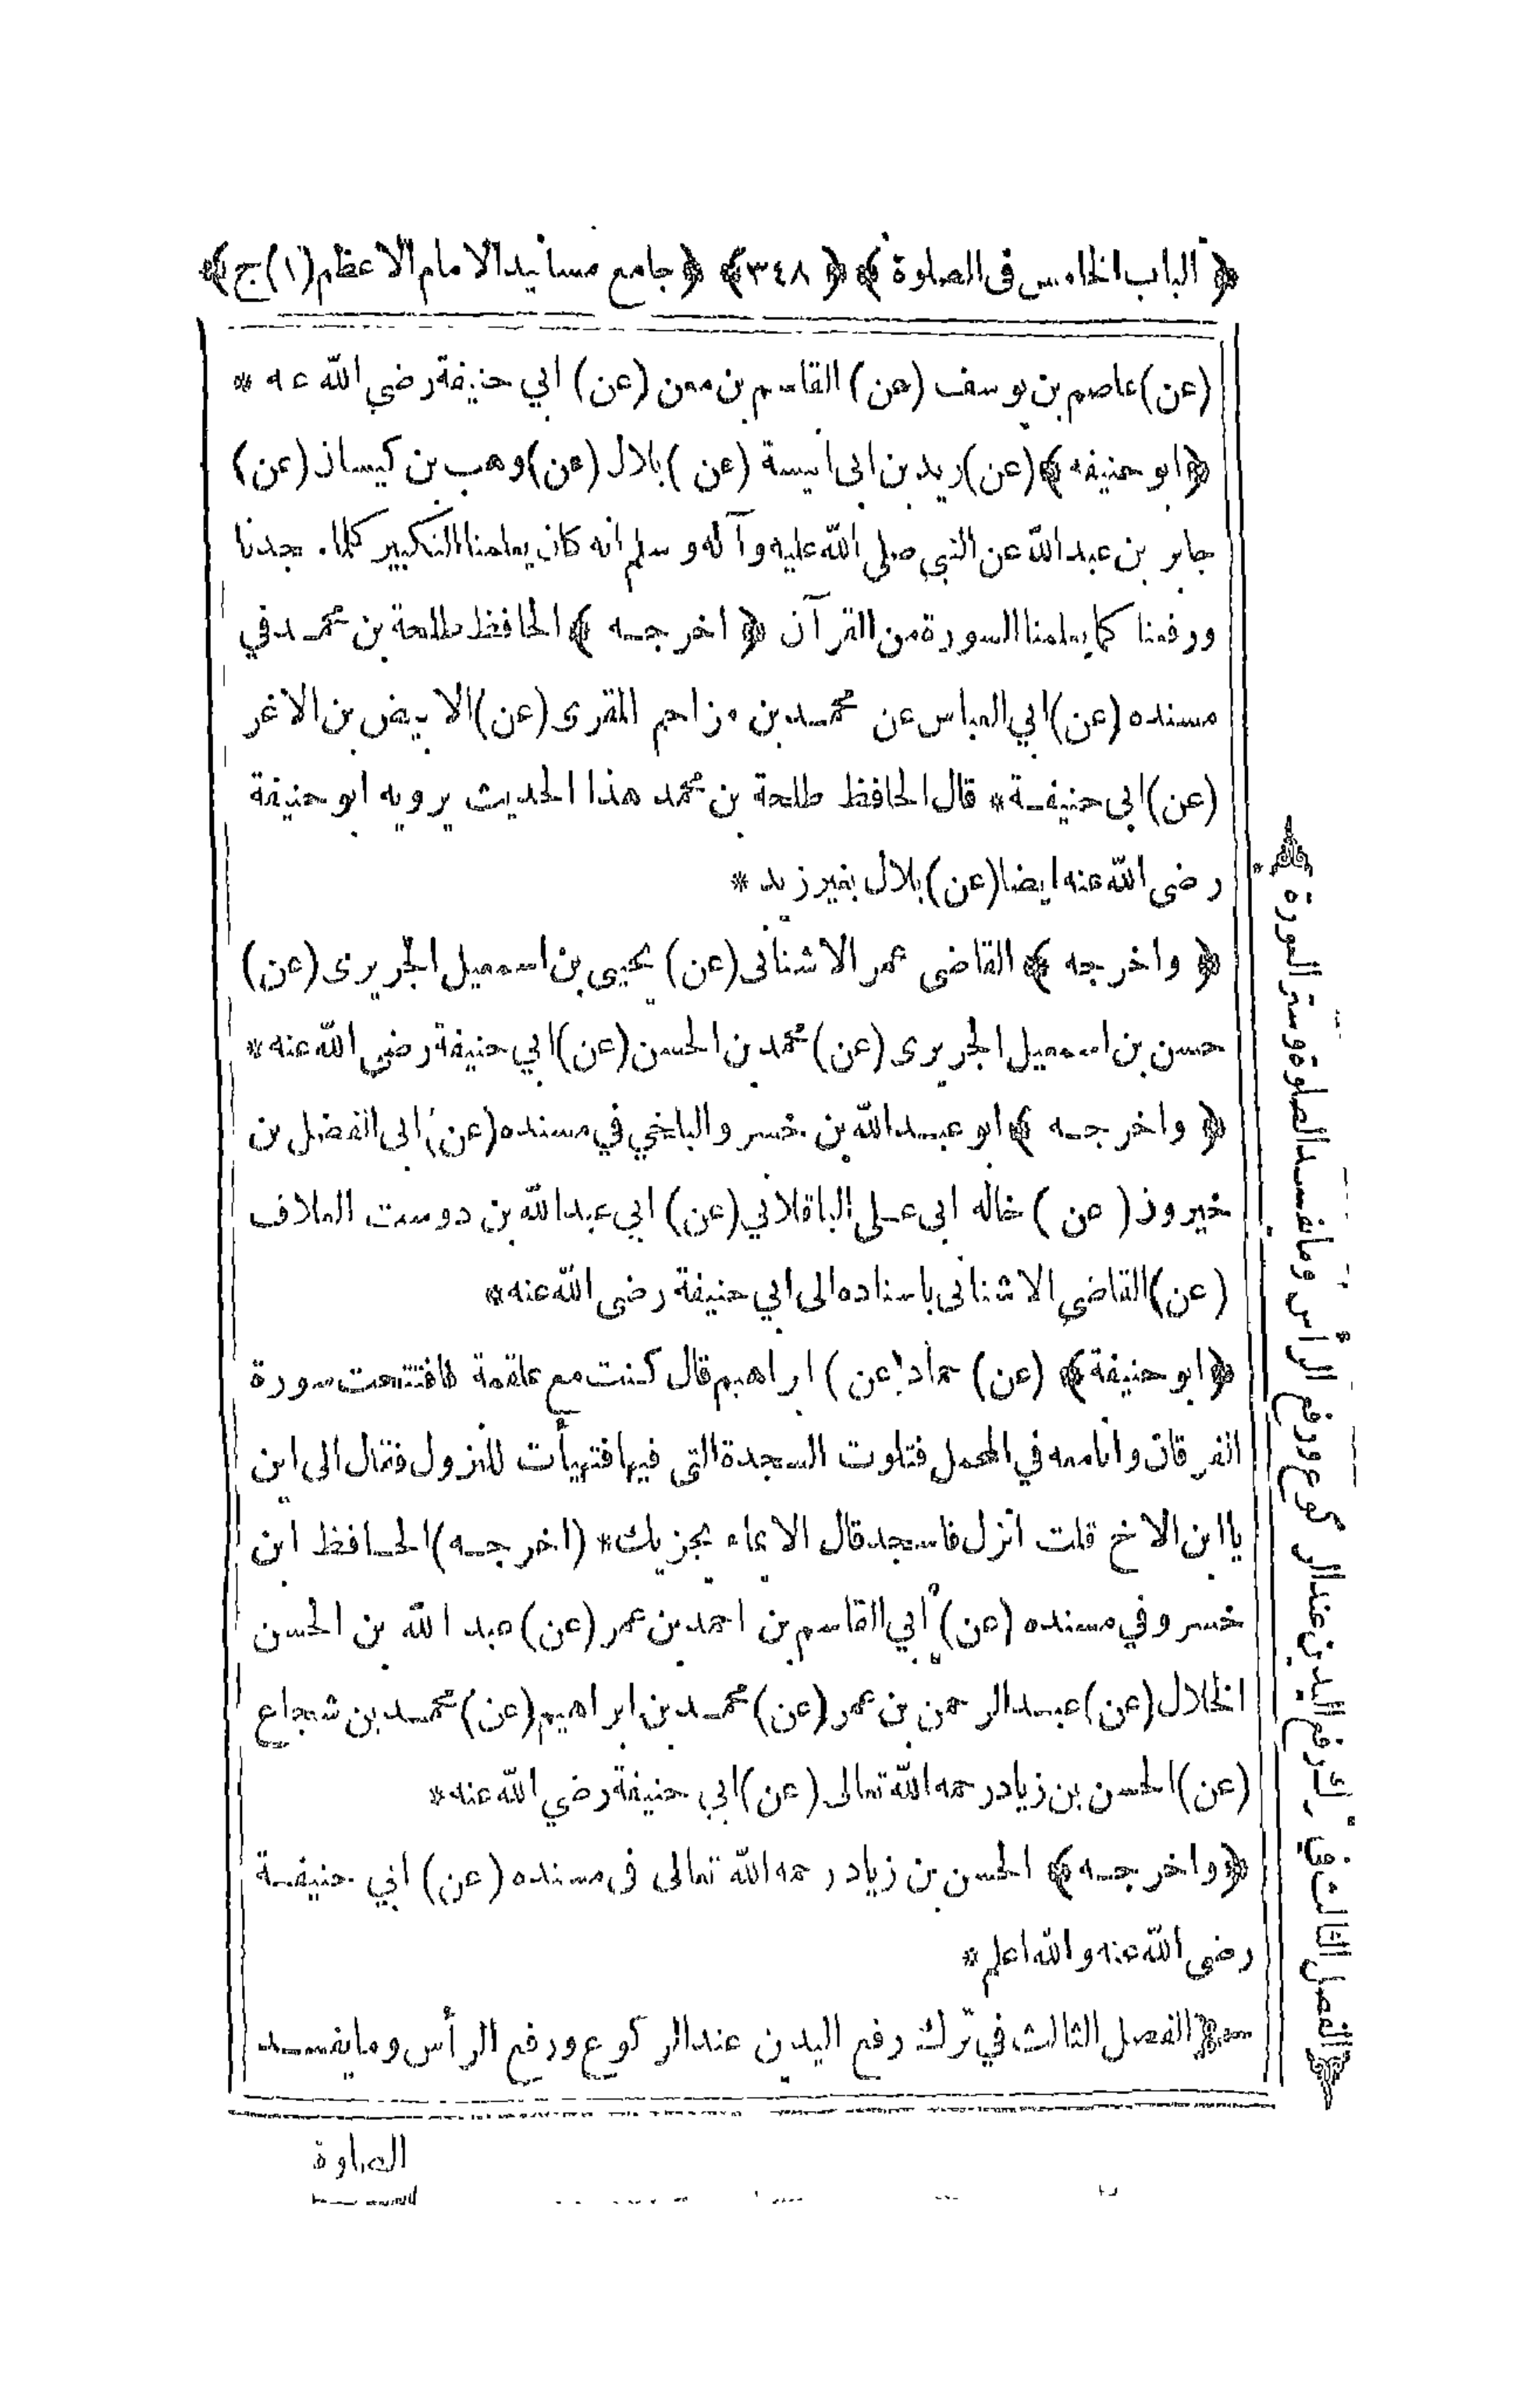 ﴿ الباب الخامس فى الصلوة ﴾ ﴿ ٣٤٨ ﴾ ﴿ جامع مسانيد الامام الاعظم (١) ج ﴾
(عن) عاصم بن يوسف (عن) القاسم بن معن (عن) ابي حنيفة رضي الله عنه *
﴿ ابو حنيفه ﴾ (عن) زيد بن ابى انيسة (عن) بلال (عن) وهب بن كيسان (عن)
جابر بن عبد الله عن النبي صلى الله عليه وآله وسلم انه كان يعلمنا التكبير كلما سجدنا
ورفعنا كما يعلمنا السورة من القرآن ﴿ اخرجه ﴾ الحافظ طلحة بن محمد في
مسنده (عن) ابي العباس عن محمد بن مزاحم المقرى (عن) الابيض بن الاغر
(عن) ابى حنيفة * قال الحافظ طلحة بن محمد هذا الحديث يرويه ابو حنيفة
رضى الله عنه ايضا (عن) بلال بغير زيد *
﴿ واخرجه ﴾ القاضى عمر الاشنانى (عن) يحيى بن اسمعيل الجريرى (عن)
حسن بن اسمعيل الجريرى (عن) محمد بن الحسن (عن) ابي حنيفة رضى الله عنه *
﴿ واخرجه ﴾ ابو عبد الله بن خسرو البلخي في مسنده (عن) ابى الفضل بن
خيرون (عن) خاله ابى على الباقلاني (عن) ابي عبد الله بن دوست العلاف
(عن) القاضي الاشنانى باسناده الى ابي حنيفة رضى الله عنه *
﴿ ابو حنيفة ﴾ (عن) حماد (عن) ابراهيم قال كنت مع علقمة فافتتحت سورة
الفرقان وانا معه في المحمل فتلوت السجدة التى فيها فتهيأت للنزول فقال الى اين
يا ابن الاخ قلت انزل فاسجد قال الايماء يجزيك * (اخرجه) الحافظ ابن
خسرو في مسنده (عن) أبي القاسم بن احمد بن عمر (عن) عبد الله بن الحسن
الخلال (عن) عبد الرحمن بن عمر (عن) محمد بن ابراهيم (عن) محمد بن شجاع
(عن) الحسن بن زياد رحمه الله تعالى (عن) ابي حنيفة رضي الله عنه *
﴿ واخرجه ﴾ الحسن بن زياد رحمه الله تعالى فى مسنده (عن) ابي حنيفة
رضى الله عنه والله اعلم *
الفصل الثالث في ترك رفع اليدين عند الركوع ورفع الرأس وما يفسد
الصلوة
الفصل الثالث في ترك رفع اليدين عند الركوع ورفع الرأس وما يفسد الصلوة وستر العورة